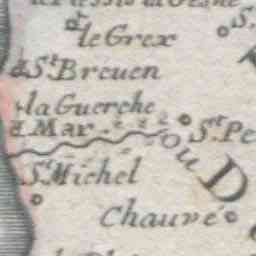 le Grex
S.
St Breuen
la Guerche
a Mar.
St Pe
ou D
St Michel
Chauvé